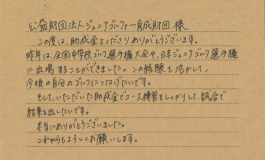 公益財団法人ジュニアゴルファー育成財団 様
この度は、助成金をくださりありがとうございます。
昨年は、全国中学校ゴルフ選手権大会や、日本ジュニアゴルフ選手権
に出場することができました。この経験を活かして、
今後の自分のゴルフにつなげたいです。
そして、いただいた助成金でコース練習をしっかりして、試合で
結果を出したいです。
本当にありがとうございました。
これからもよろしくお願いします。